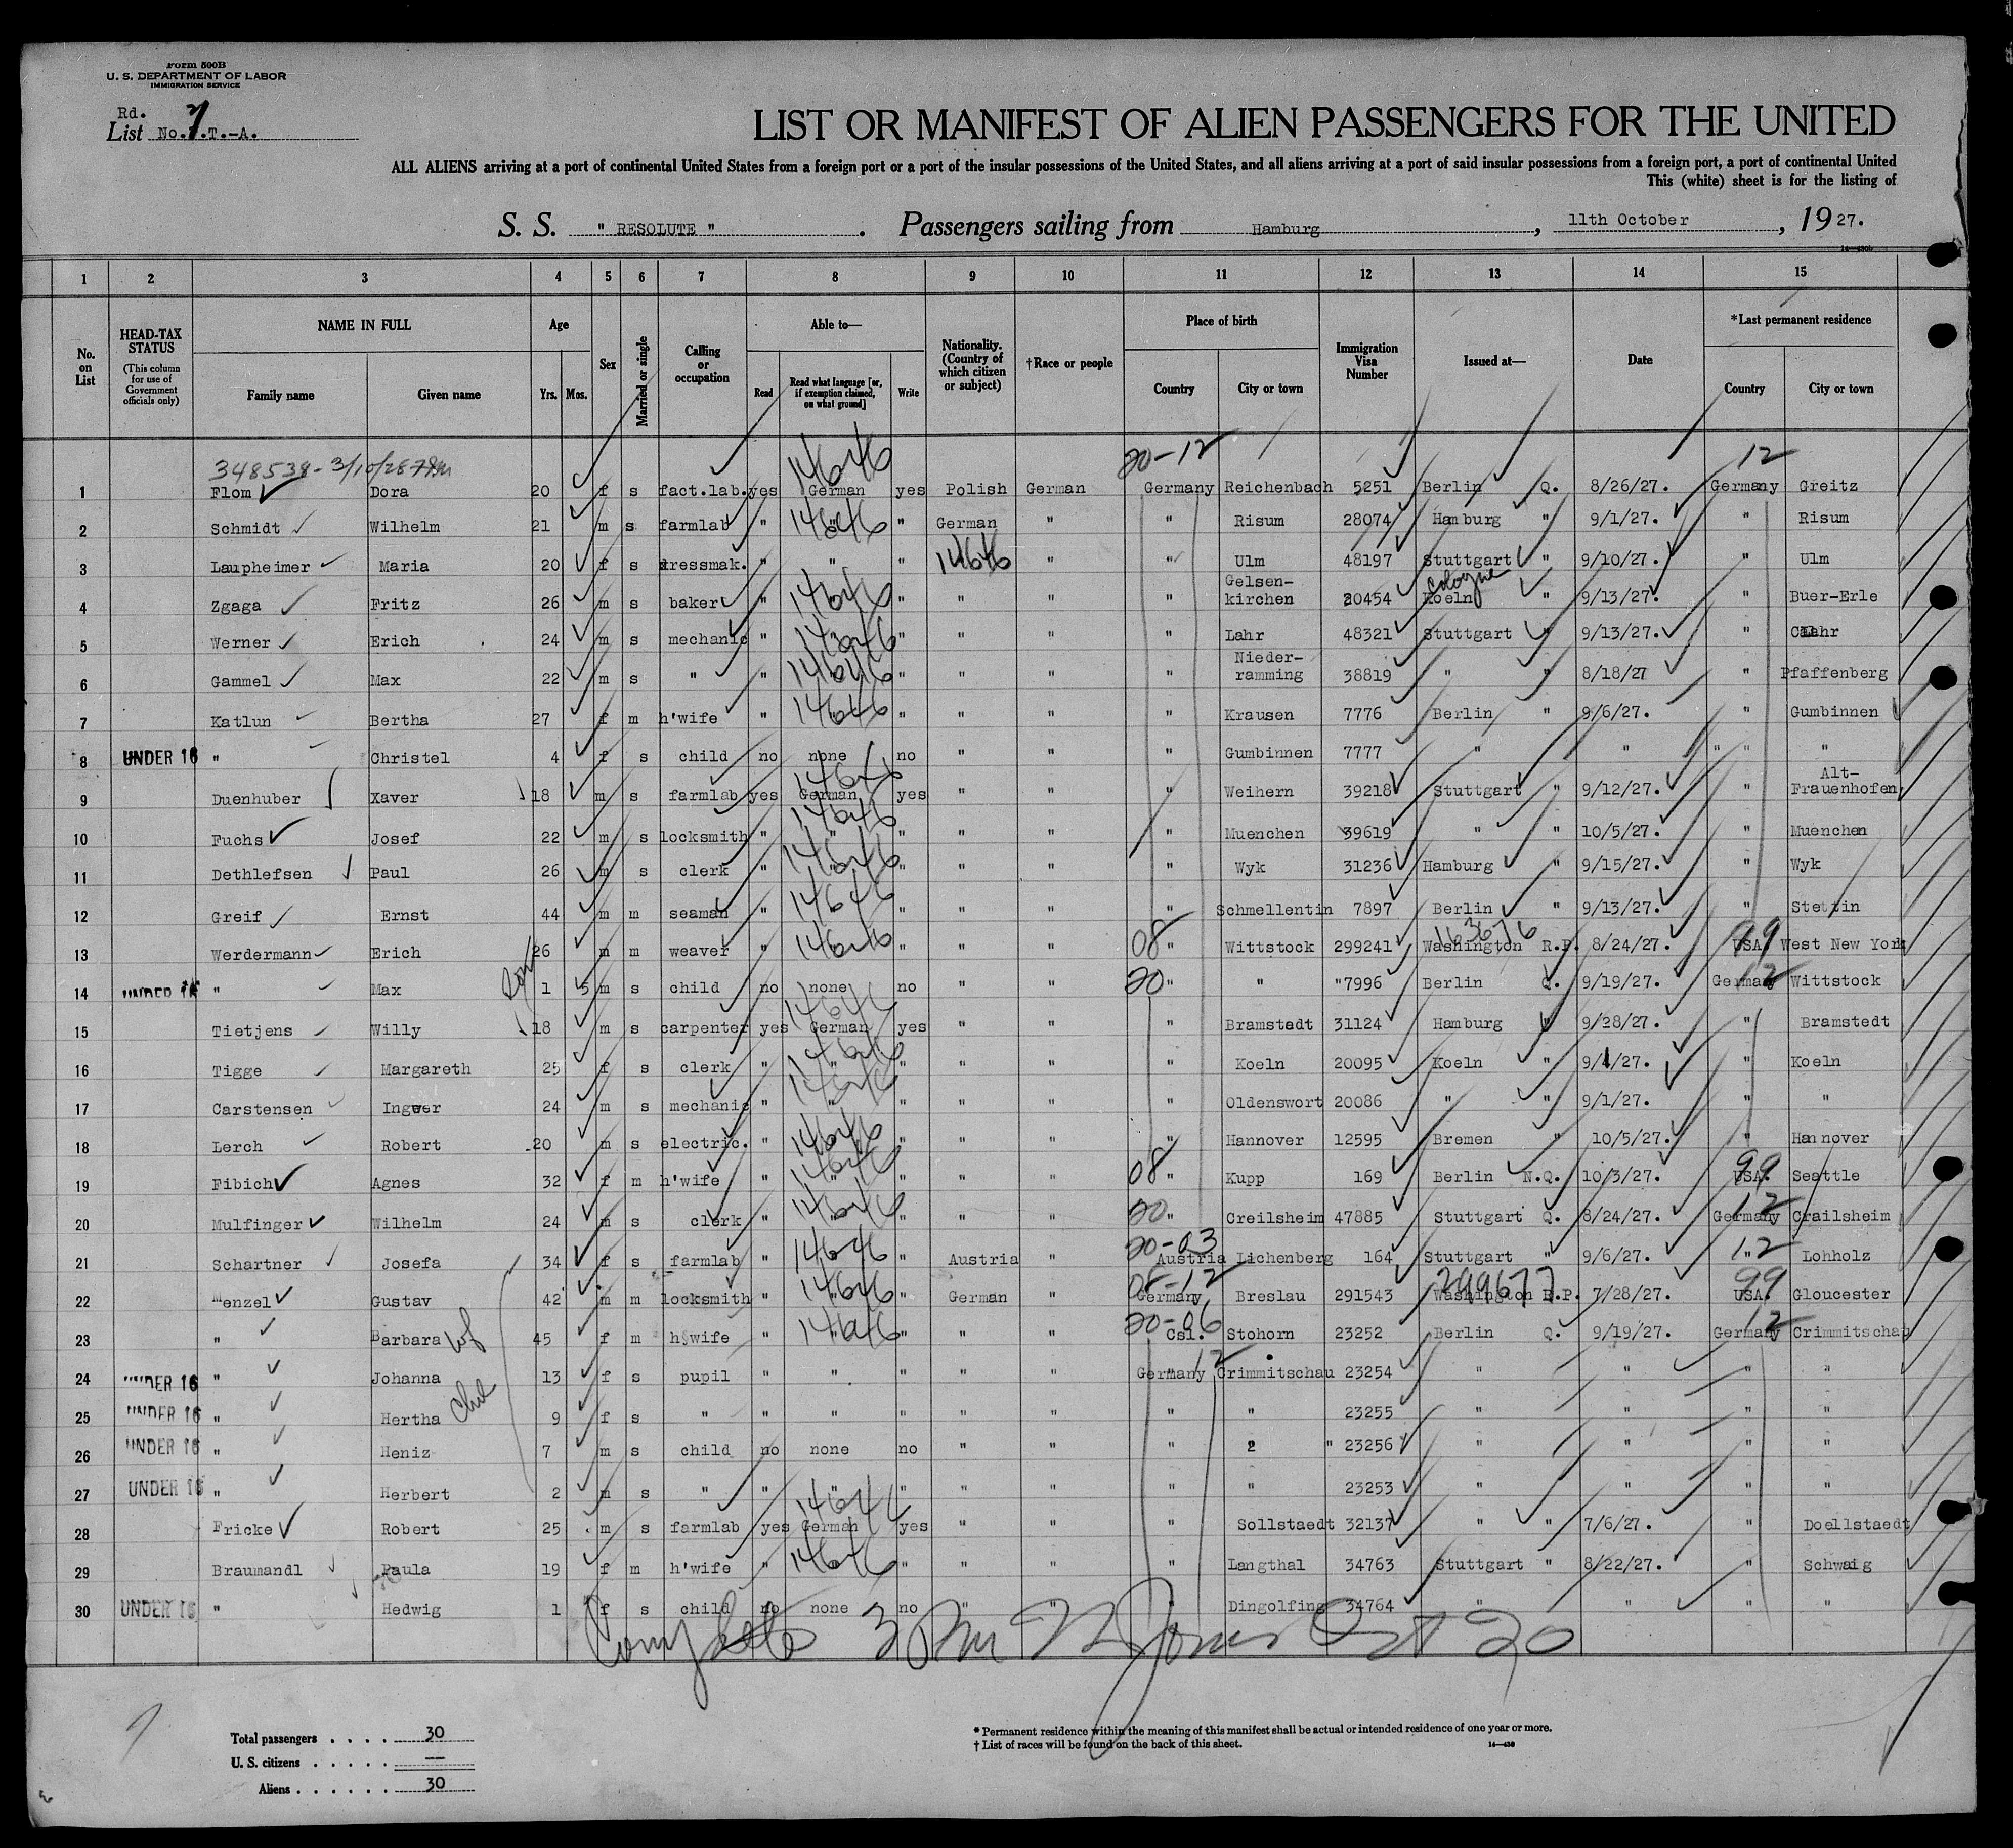 Form 500B
U. S. DEPARTMENT OF LABOR
IMMIGRATION SERVICE
Rd.
List No. 7.T.-A.
LIST OR MANIFEST OF ALIEN PASSENGERS FOR THE UNITED
ALL ALIENS arriving at a port of continental United States from a foreign port or a port of the insular possessions of the United States, and all aliens arriving at a port of said insular possessions from a foreign port, a port of continental United
This (white) sheet is for the listing of
S. S. " RESOLUTE " . Passengers sailing from Hamburg , 11th October , 1927.
14—430b
1 2 3 4 5 6 7 8 9 10 11 12 13 14 15
No. on List
HEAD-TAX STATUS (This column for use of Government officials only)
NAME IN FULL Family name Given name
Age Yrs. Mos.
Sex
Married or single
Calling or occupation
Able to— Read Read what language [or, if exemption claimed, on what ground] Write
Nationality. (Country of which citizen or subject)
†Race or people
Place of birth Country City or town
Immigration Visa Number
Issued at—
Date
*Last permanent residence Country City or town
348538-3/10/28 20-12 14646 12
1 Flom Dora 20 f s fact.lab. yes German yes Polish German Germany Reichenbach 5251 Berlin Q. 8/26/27. Germany Greitz
2 Schmidt Wilhelm 21 m s farmlab " 14646 " German " " Risum 28074 Hamburg " 9/1/27. " Risum
3 Laupheimer Maria 20 f s dressmak. " " " 14646 " " Ulm 48197 Stuttgart " 9/10/27. " Ulm
4 Zgaga Fritz 26 m s baker " 14646 " " " " Gelsen-kirchen 20454 Koeln Cologne " 9/13/27. " Buer-Erle
5 Werner Erich 24 m s mechanic " 14646 " " " " Lahr 48321 Stuttgart " 9/13/27. " Lahr
6 Gammel Max 22 m s " " 14646 " " " " Nieder-ramming 38819 " " 8/18/27 " Pfaffenberg
7 Katlun Bertha 27 f m h'wife " 14646 " " " " Krausen 7776 Berlin " 9/6/27. " Gumbinnen
8 UNDER 16 " Christel 4 f s child no none no " " " Gumbinnen 7777 " " " " "
9 Duenhuber Xaver 18 m s farmlab yes German 14646 yes " " " Weihern 39218 Stuttgart " 9/12/27. " Alt-Frauenhofen
10 Fuchs Josef 22 m s locksmith " 14646 " " " " Muenchen 39619 " " 10/5/27. " Muenchen
11 Dethlefsen Paul 26 m s clerk " 14646 " " " " Wyk 31236 Hamburg " 9/15/27. " Wyk
12 Greif Ernst 44 m m seaman " 14646 " " " " Schmellentin 7897 Berlin " 9/13/27. " Stettin
13 Werdermann Erich 26 m m weaver " 14646 " " " 08 " Wittstock 299241 Washington R.P. 163676 8/24/27. USA 99 West New York
14 UNDER 16 " Max son 1 5 m s child no none no " " 20 " " "7996 Berlin Q. 9/19/27. Germany 12 Wittstock
15 Tietjens Willy 18 m s carpenter yes German 14646 yes " " " Bramstedt 31124 Hamburg " 9/28/27. " Bramstedt
16 Tigge Margareth 25 f s clerk " 14646 " " " " Koeln 20095 Koeln " 9/1/27. " Koeln
17 Carstensen Ingwer 24 m s mechanic " 14646 " " " " Oldenswort 20086 " " 9/1/27. " "
18 Lerch Robert 20 m s electric. " 14646 " " " " Hannover 12595 Bremen " 10/5/27. " Hannover
19 Fibich Agnes 32 f m h'wife " 14646 " " " 08 " Kupp 169 Berlin N.Q. 10/3/27. USA. 99 Seattle
20 Mulfinger Wilhelm 24 m s clerk " 14646 " " " 20 " Creilsheim 47885 Stuttgart Q. 8/24/27. Germany 12 Crailsheim
21 Schartner Josefa 34 f s farmlab " 14646 " Austria " 20-03 Austria Lichenberg 164 Stuttgart " 9/6/27. " 12 Lohholz
22 Menzel Gustav 42 m m locksmith " 14646 " German " 08-12 Germany Breslau 291543 Washington R.P. 299677 7/28/27. USA. 99 Gloucester
23 " Barbara wf 45 f m h'wife " 14646 " " " 20-06 Csl. Stohorn 23252 Berlin Q. 9/19/27. Germany 12 Crimmitschau
24 UNDER 16 " Johanna 13 f s pupil " " " " " Germany 12 Crimmitschau 23254 " " " "
25 UNDER 16 " Hertha chil 9 f s " " " " " " " " 23255 " " " "
26 UNDER 16 " Heniz 7 m s child no none no " " " " 23256 " " " "
27 UNDER 16 " Herbert 2 m s " " " " " " " " 23253 " " " "
28 Fricke Robert 25 m s farmlab yes German 14646 yes " " " Sollstaedt 32137 " " 7/6/27. " Doellstaedt
29 Braumandl Paula 19 f m h'wife " 14646 " " " " Langthal 34763 Stuttgart " 8/22/27. " Schwaig
30 UNDER 16 " Hedwig 1 f s child no none no " " " Dingolfing 34764 " " " "
Complete 30 Jones Oct 20
Total passengers . . . . 30
U. S. citizens . . . . . —
Aliens . . . . . . 30
* Permanent residence within the meaning of this manifest shall be actual or intended residence of one year or more.
† List of races will be found on the back of this sheet. 14—430